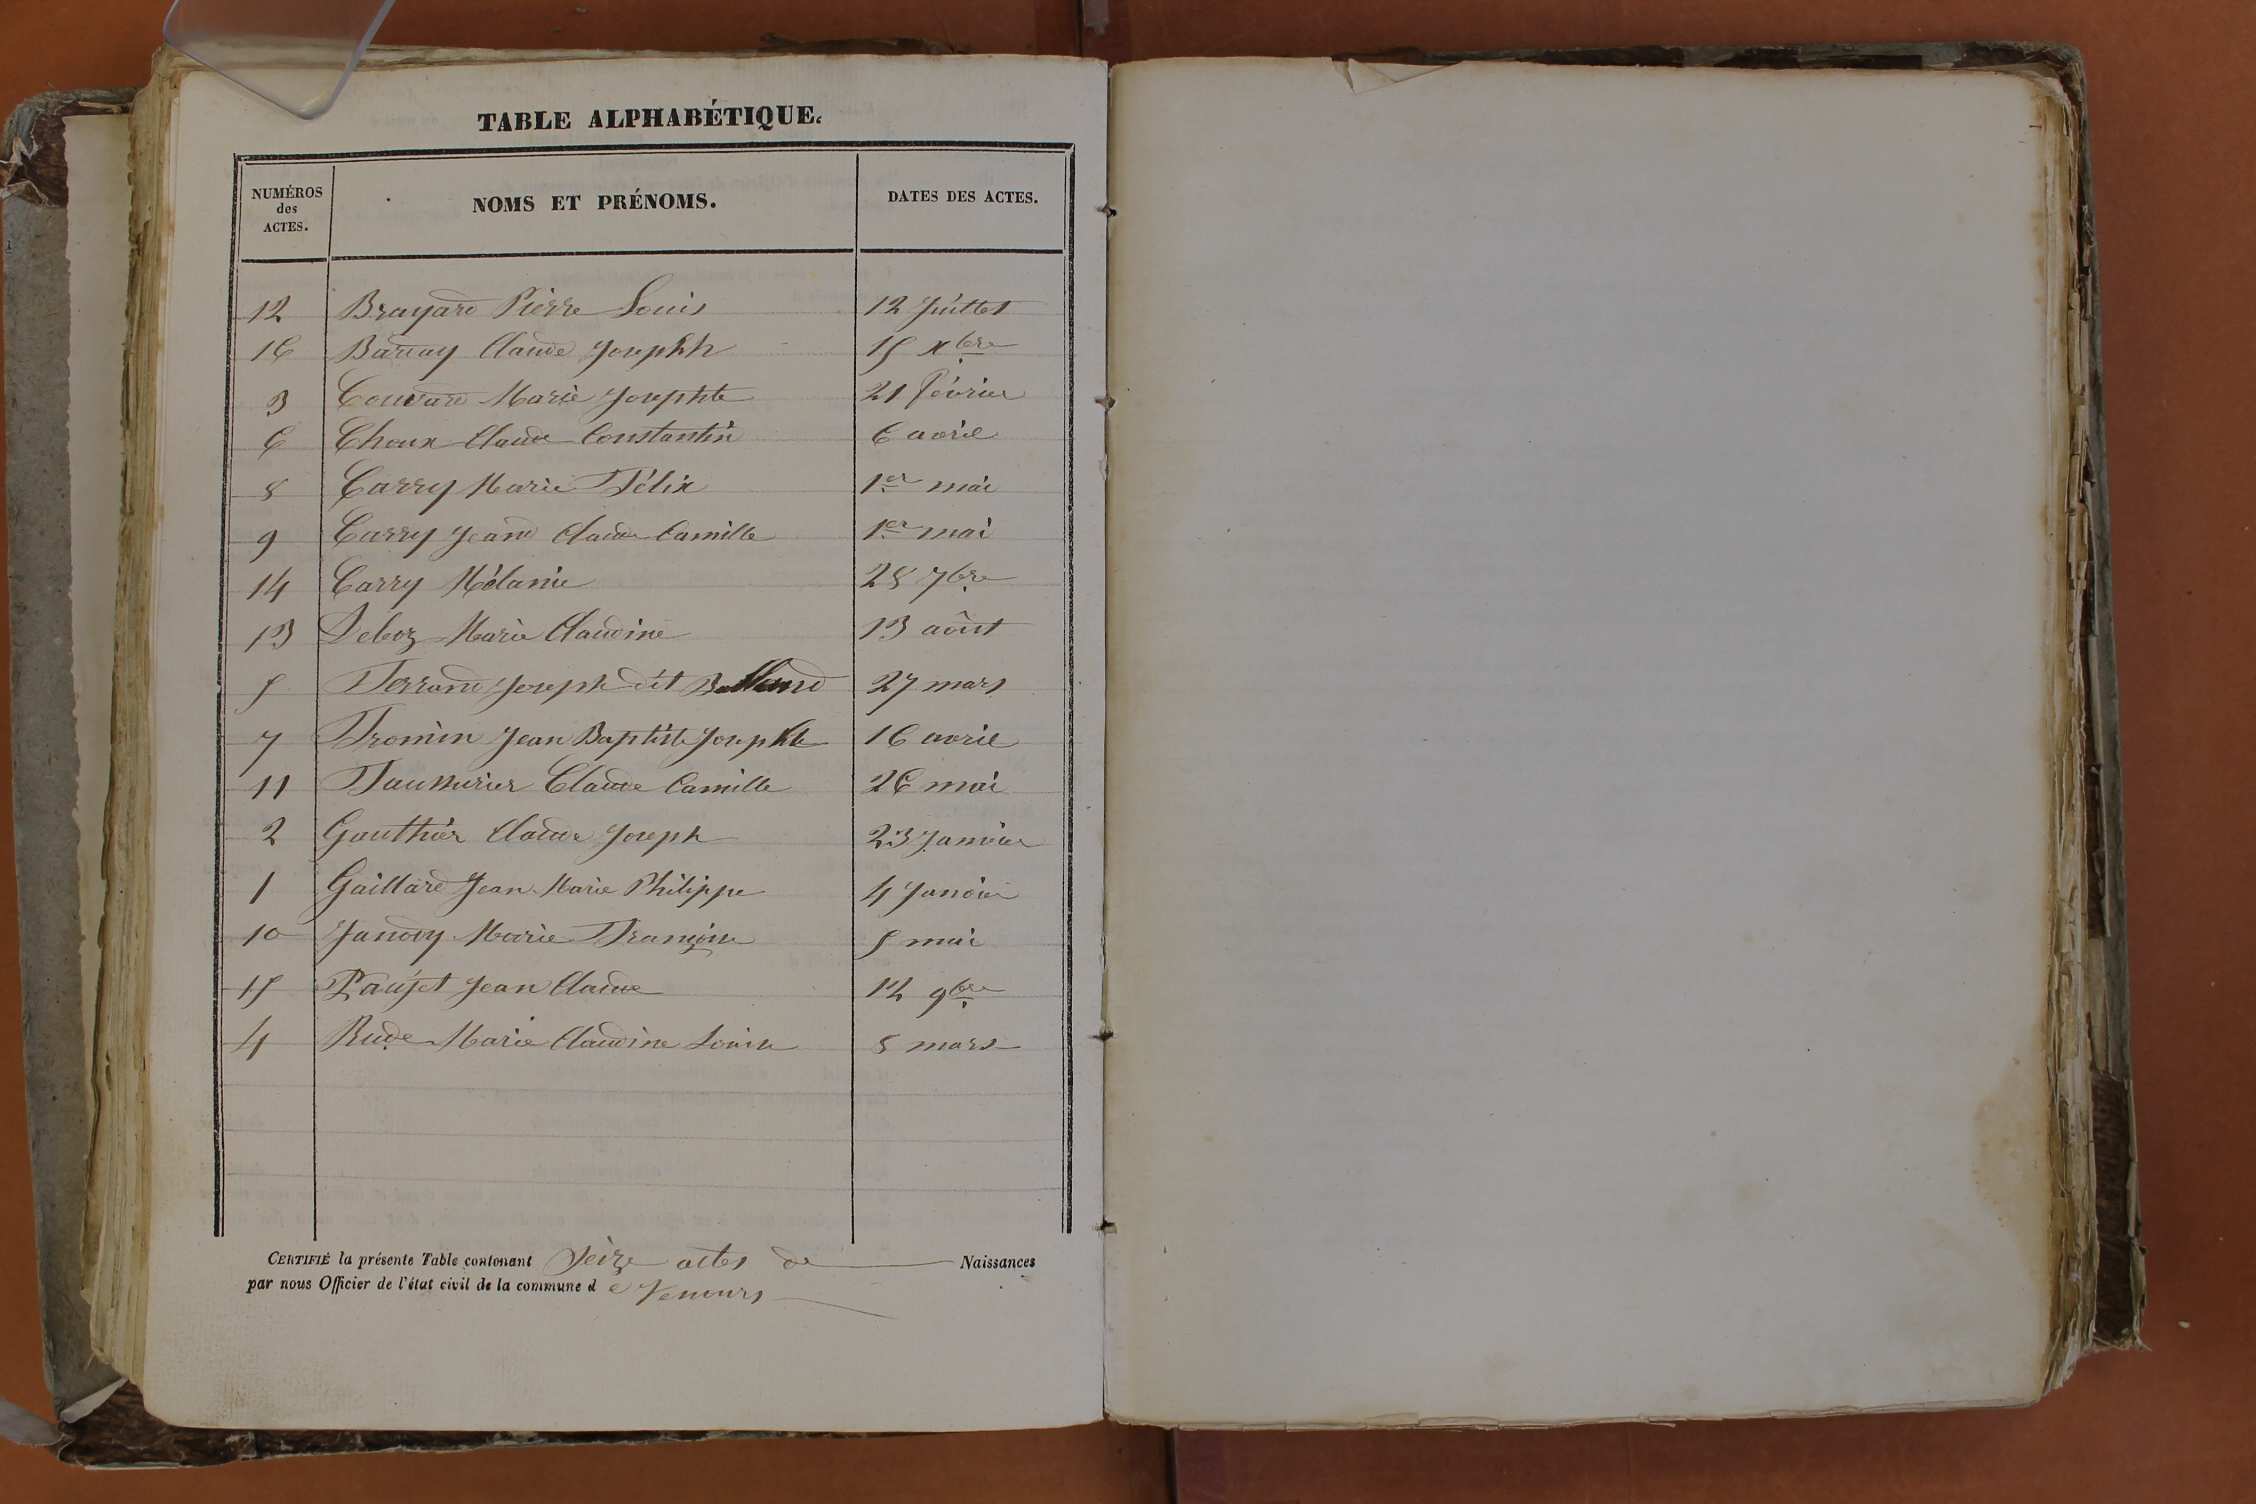 TABLE ALPHABÉTIQUE.
NUMÉROS des ACTES. NOMS ET PRÉNOMS. DATES DES ACTES.
12 Brayard Pierre Louis 12 Juillet
16 Barnay Claude Josephh 15 Xbre
3 Couvard Marie Josephte 21 Février
6 Choux Claude Constantin 6 avril
8 Carry Marie Félix 1er mai
9 Carry Jean Claude Camille 1er mai
14 Carry Mélanie 28 7bre
13 Deboz Marie Claudine 13 août
5 Ferrand Joseph dit 27 mars
7 Fromin Jean Baptiste Josephte 16 avril
11 Claude Camille 26 mai
2 Gauthier Claude Joseph 23 Janvier
1 Gaillard Jean Marie Philippe 4 Janvier
10 Jandoy Marie Françoise 5 mai
15 Paujet Jean Claude 12 9bre
4 Rude Marie Claudine Louise 8 mars
CERTIFIÉ la présente Table contenant Seize actes de Naissances
par nous Officier de l'état civil de la commune d e